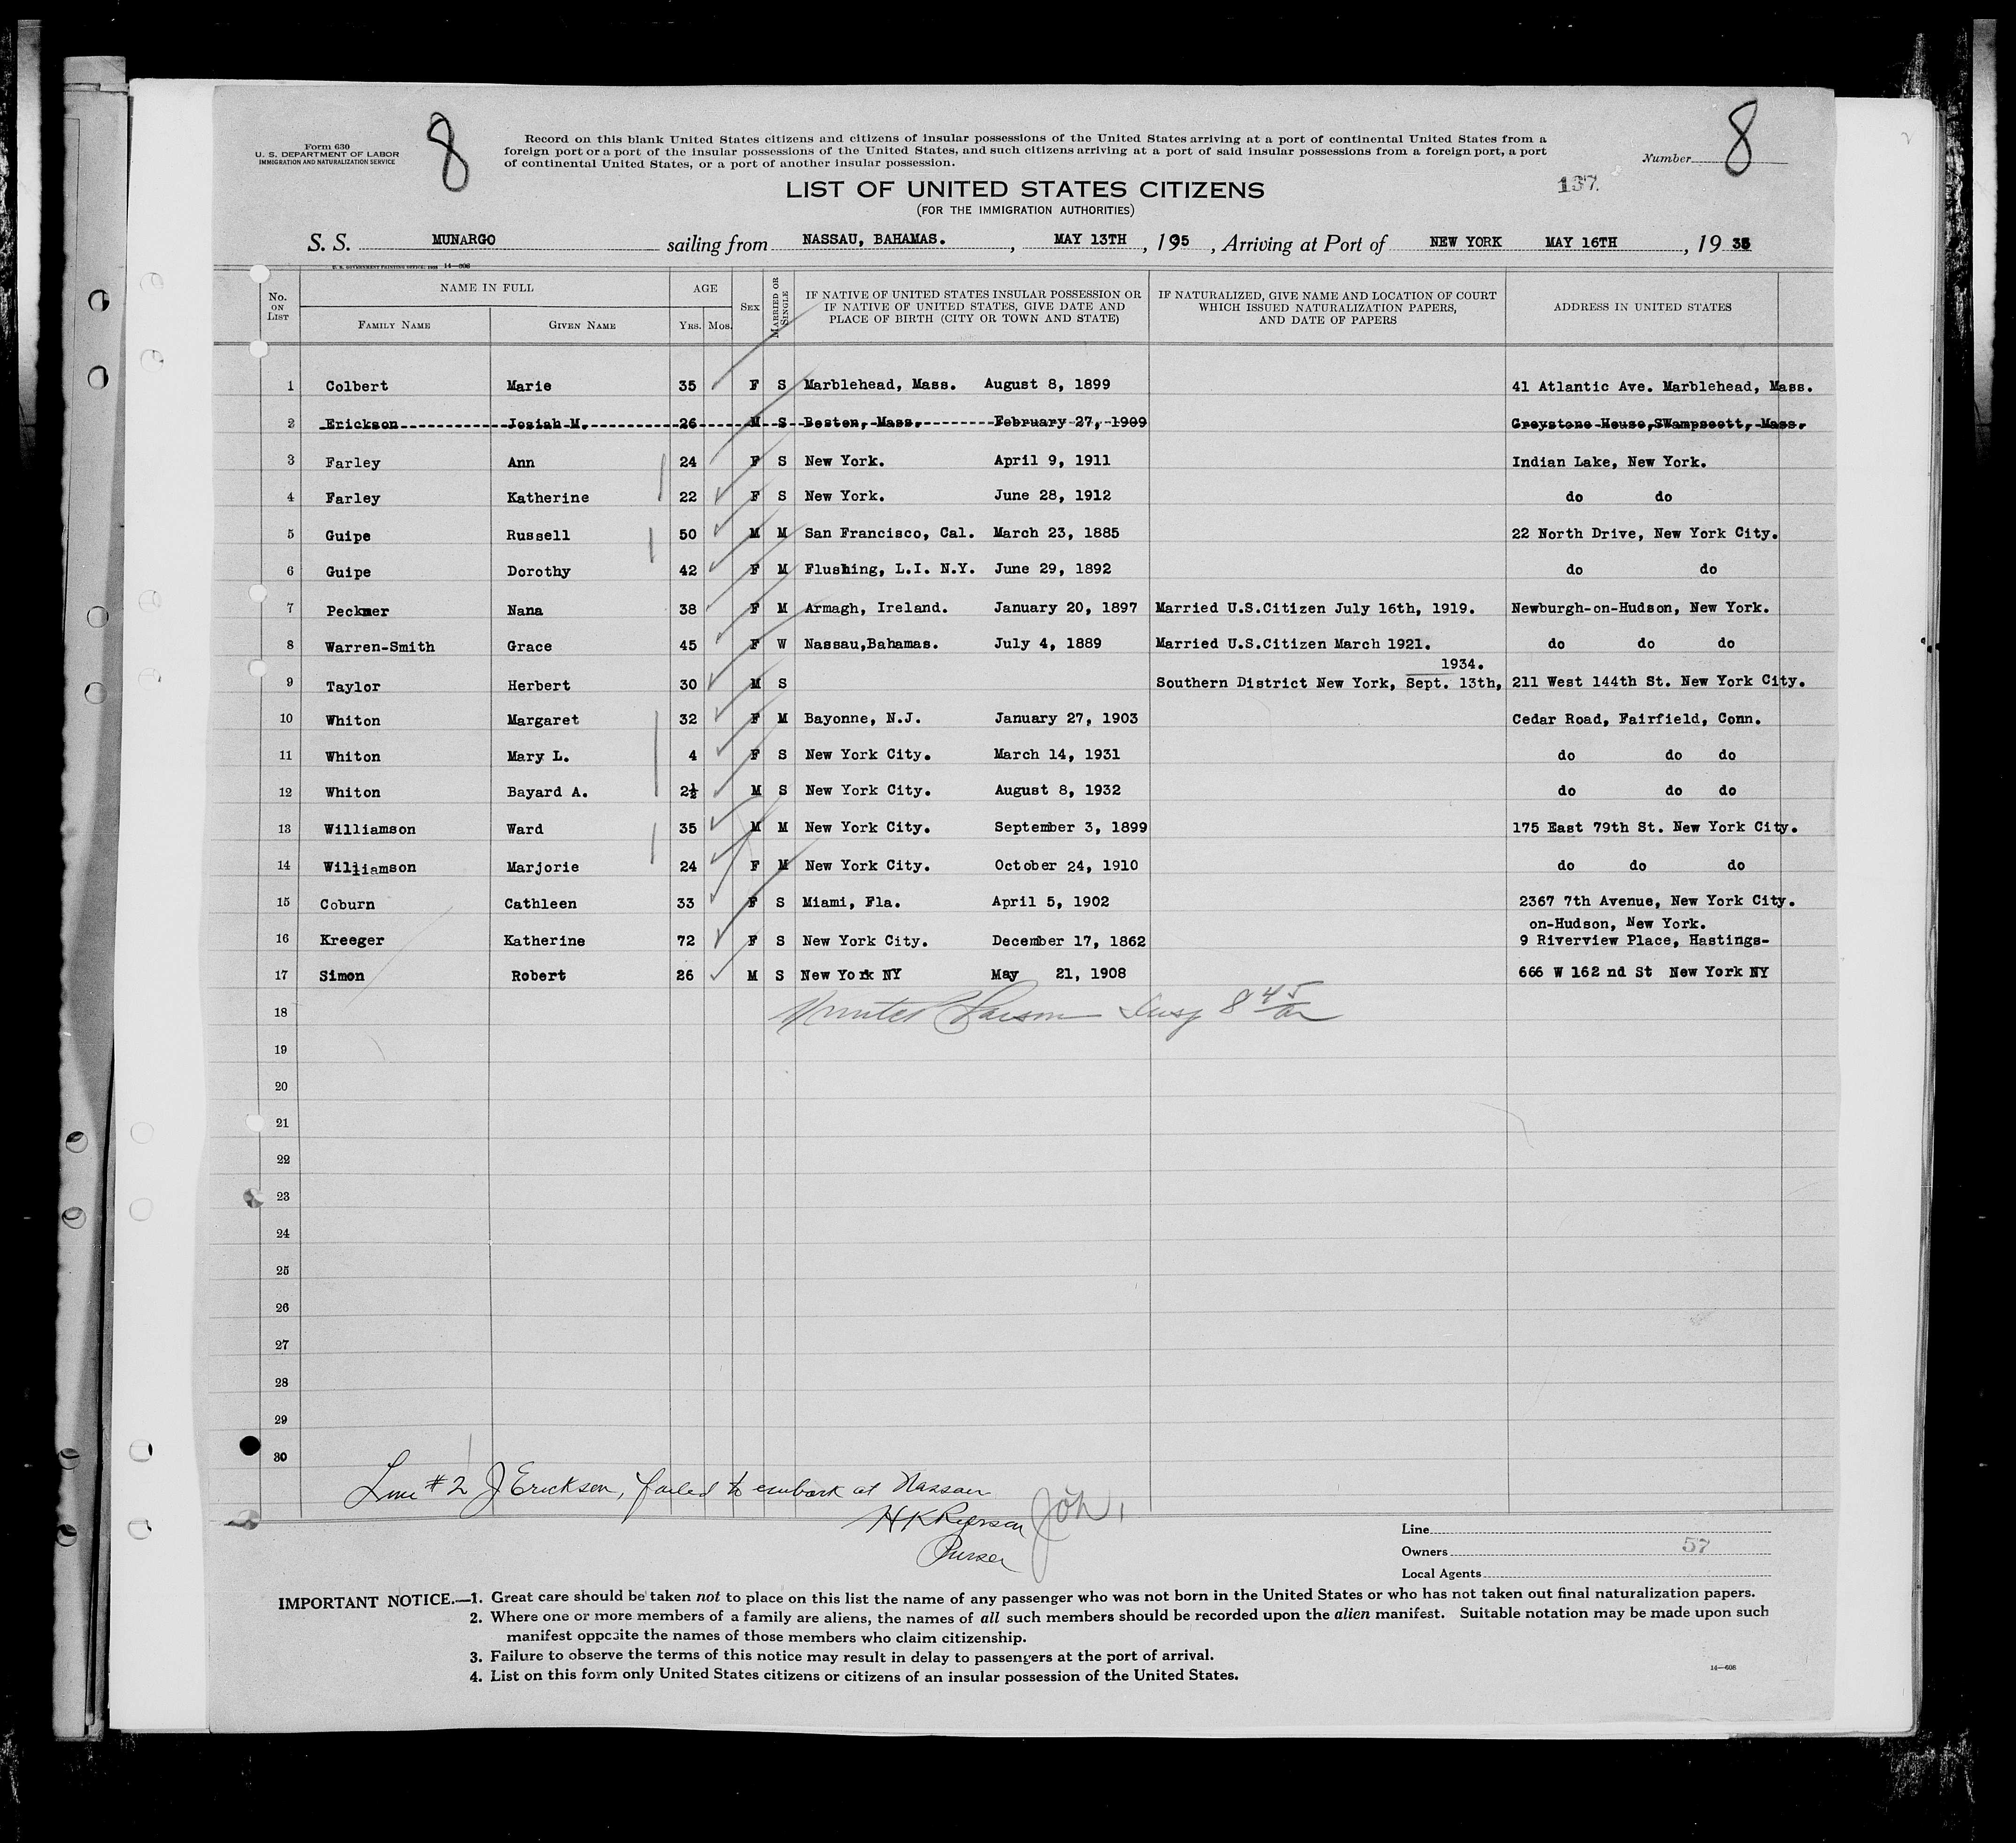 8
8
Form 630
U. S. DEPARTMENT OF LABOR
IMMIGRATION AND NATURALIZATION SERVICE
Record on this blank United States citizens and citizens of insular possessions of the United States arriving at a port of continental United States from a
foreign port or a port of the insular possessions of the United States, and such citizens arriving at a port of said insular possessions from a foreign port, a port
of continental United States, or a port of another insular possession.
Number
LIST OF UNITED STATES CITIZENS
137
(FOR THE IMMIGRATION AUTHORITIES)
S. S. MUNARGO sailing from NASSAU, BAHAMAS. , MAY 13TH , 195 , Arriving at Port of NEW YORK MAY 16TH , 19 35
U. S. GOVERNMENT PRINTING OFFICE: 1933 14—608
No. ON LIST NAME IN FULL FAMILY NAME GIVEN NAME AGE YRS. MOS. SEX MARRIED OR SINGLE IF NATIVE OF UNITED STATES INSULAR POSSESSION OR IF NATIVE OF UNITED STATES, GIVE DATE AND PLACE OF BIRTH (CITY OR TOWN AND STATE) IF NATURALIZED, GIVE NAME AND LOCATION OF COURT WHICH ISSUED NATURALIZATION PAPERS, AND DATE OF PAPERS ADDRESS IN UNITED STATES
1 Colbert Marie 35 F S Marblehead, Mass. August 8, 1899 41 Atlantic Ave. Marblehead, Mass.
2 Erickson Josiah M. 26 M S Boston, Mass. February 27, 1909 Greystone House, SWampscott, Mass.
3 Farley Ann 24 F S New York. April 9, 1911 Indian Lake, New York.
4 Farley Katherine 22 F S New York. June 28, 1912 do do
5 Guipe Russell 50 M M San Francisco, Cal. March 23, 1885 22 North Drive, New York City.
6 Guipe Dorothy 42 F M Flushing, L.I. N.Y. June 29, 1892 do do
7 Peckmer Nana 38 F M Armagh, Ireland. January 20, 1897 Married U.S.Citizen July 16th, 1919. Newburgh-on-Hudson, New York.
8 Warren-Smith Grace 45 F W Nassau,Bahamas. July 4, 1889 Married U.S.Citizen March 1921. do do do
1934.
9 Taylor Herbert 30 M S Southern District New York, Sept. 13th, 211 West 144th St. New York City.
10 Whiton Margaret 32 F M Bayonne, N.J. January 27, 1903 Cedar Road, Fairfield, Conn.
11 Whiton Mary L. 4 F S New York City. March 14, 1931 do do do
12 Whiton Bayard A. 2½ M S New York City. August 8, 1932 do do do
13 Williamson Ward 35 M M New York City. September 3, 1899 175 East 79th St. New York City.
14 Williamson Marjorie 24 F M New York City. October 24, 1910 do do do
15 Coburn Cathleen 33 F S Miami, Fla. April 5, 1902 2367 7th Avenue, New York City.
on-Hudson, New York.
16 Kreeger Katherine 72 F S New York City. December 17, 1862 9 Riverview Place, Hastings-
17 Simon Robert 26 M S New York NY May 21, 1908 666 W 162 nd St New York NY
18 Insp 8 45
19
20
21
22
23
24
25
26
27
28
29
30
Line #2 J Erickson, failed to embark at Nassau
Purser
Line
Owners 57
Local Agents
IMPORTANT NOTICE.—1. Great care should be taken not to place on this list the name of any passenger who was not born in the United States or who has not taken out final naturalization papers.
2. Where one or more members of a family are aliens, the names of all such members should be recorded upon the alien manifest. Suitable notation may be made upon such
manifest opposite the names of those members who claim citizenship.
3. Failure to observe the terms of this notice may result in delay to passengers at the port of arrival.
4. List on this form only United States citizens or citizens of an insular possession of the United States.
14—608